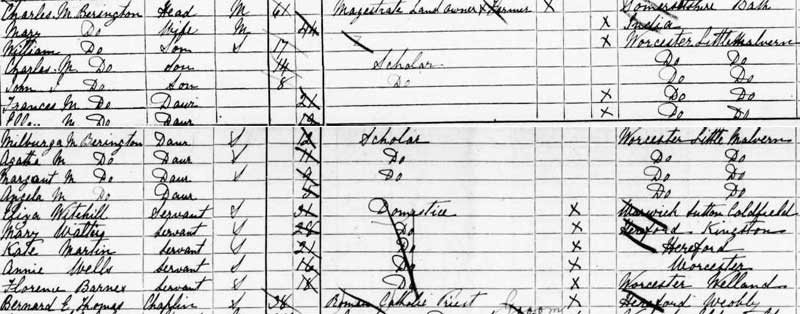 Charles M. Berington Head M 61 Magistrate Land owner & Farmer X Somersetshire Bath
Mary Do Wife M 44 X India
William Do Son S 17 X Worcester Little Malvern
Charles M. Do Son 14 Scholar Do Do
John Do Son 8 Do Do Do
Frances M Do Daur 21 X Do Do
M Do Daur X Do Do
Milburga M Berington Daur S Scholar Worcester Little Malvern
Agatha M Do Daur S 11 Do Do Do
Margaret M Do Daur S 9 Do Do Do
Angela M Do Daur Do Do
Eliza Witchill Servant S 31 Domestice X Warwick Sutton Coldfield
Mary Watts Servant S 28 Do X Hereford Kingston
Kate Martin Servant S 21 Do X Hereford
Annie Wells Servant S 18 Do X Worcester
Florence Barnes Servant S 18 Do X Worcester Welland
Bernard E. Thomas Chaplin S 38 Roman Catholic Priest X Hereford Weobly